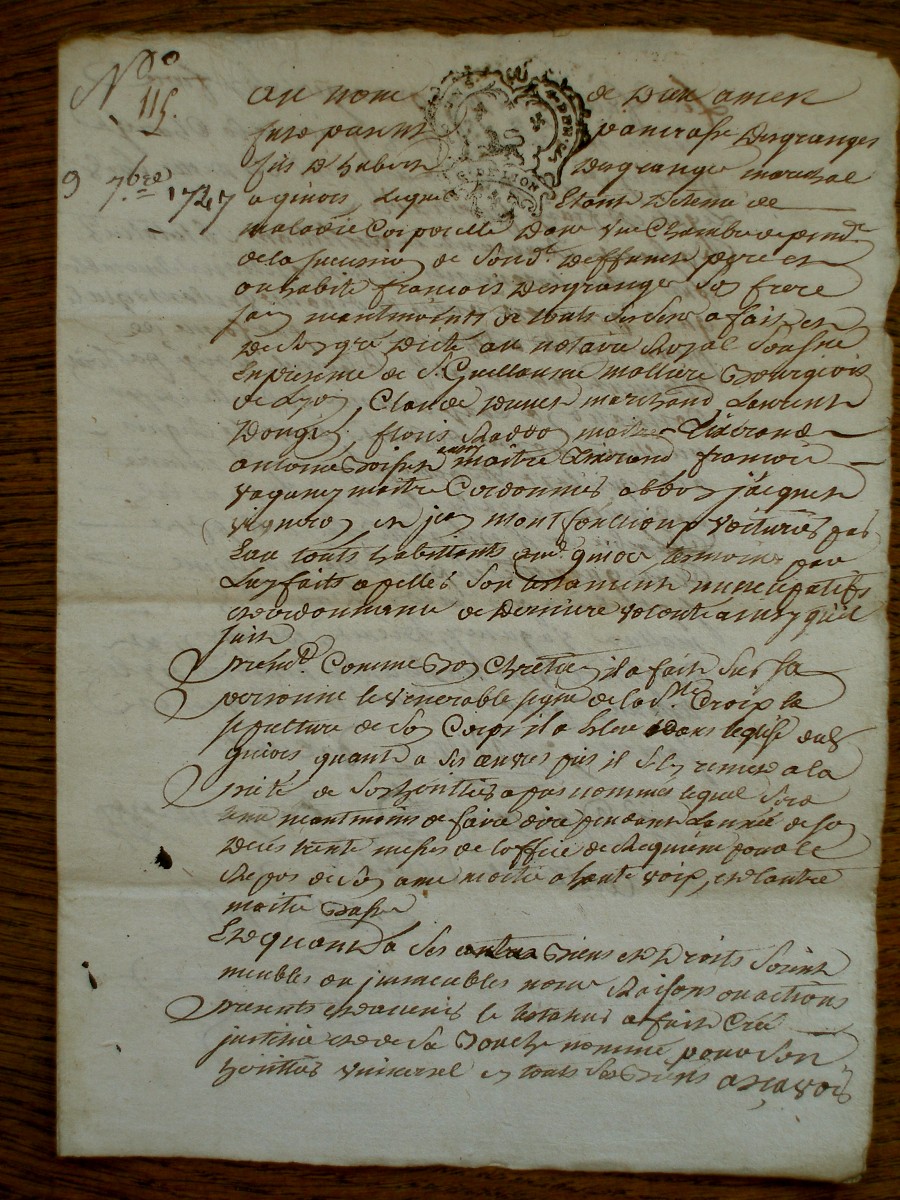 No
115
9 7bre
1747
au nom de Dieu amen
fut present pancrasse Desgranges
fils D'hubert Desgrange marechal
a givors, lequel Etant Detenu de
maladie Corporelle Dans une Chambre depend.
de la succession de son d. Deffunct pere et
ou habite francois Desgranges son frere
sain neantmoints de touts ses sens a fait et
de son gre dicté au notaire Royal sousigne
En presence de Sr Guillaume mollière Bourgeois
de Lyon, Claude marchand, Laurent
maitre Tixerand
antoine maitre Tixerand francois
maitre Cordonnier
et jean voituriers par
Eau touts habitants aud. givors temoins par
Luy faits apelles son testament nuncupatifs
et ordonnance de Derniere volonte ainsy qu'il
suit
Premt. Comme Bon Chretien il a fait sur sa
personne le venerable signe de la Ste. Croix la
sepulture de son Corps il a Eleu Dans leglise dud.
givors quant a ses œuvres pies il s'en remet a la
pieté de son heritier apres nomme lequel sera
tenu neantmoins de faire dire pendant Lannée de son
Decés trente messes de Loffice de Requiem pour le
Repos de son ame moitie a haute voix, et Lautre
moitie Basse
Et quant a ses autres Biens et Droits soient
meubles ou immeubles noms Raisons ou actions
presents et avenirs le testateur a fait Créé
institué et de sa Bouche nommé pour son
heritier universel en touts ses Biens asçavoir